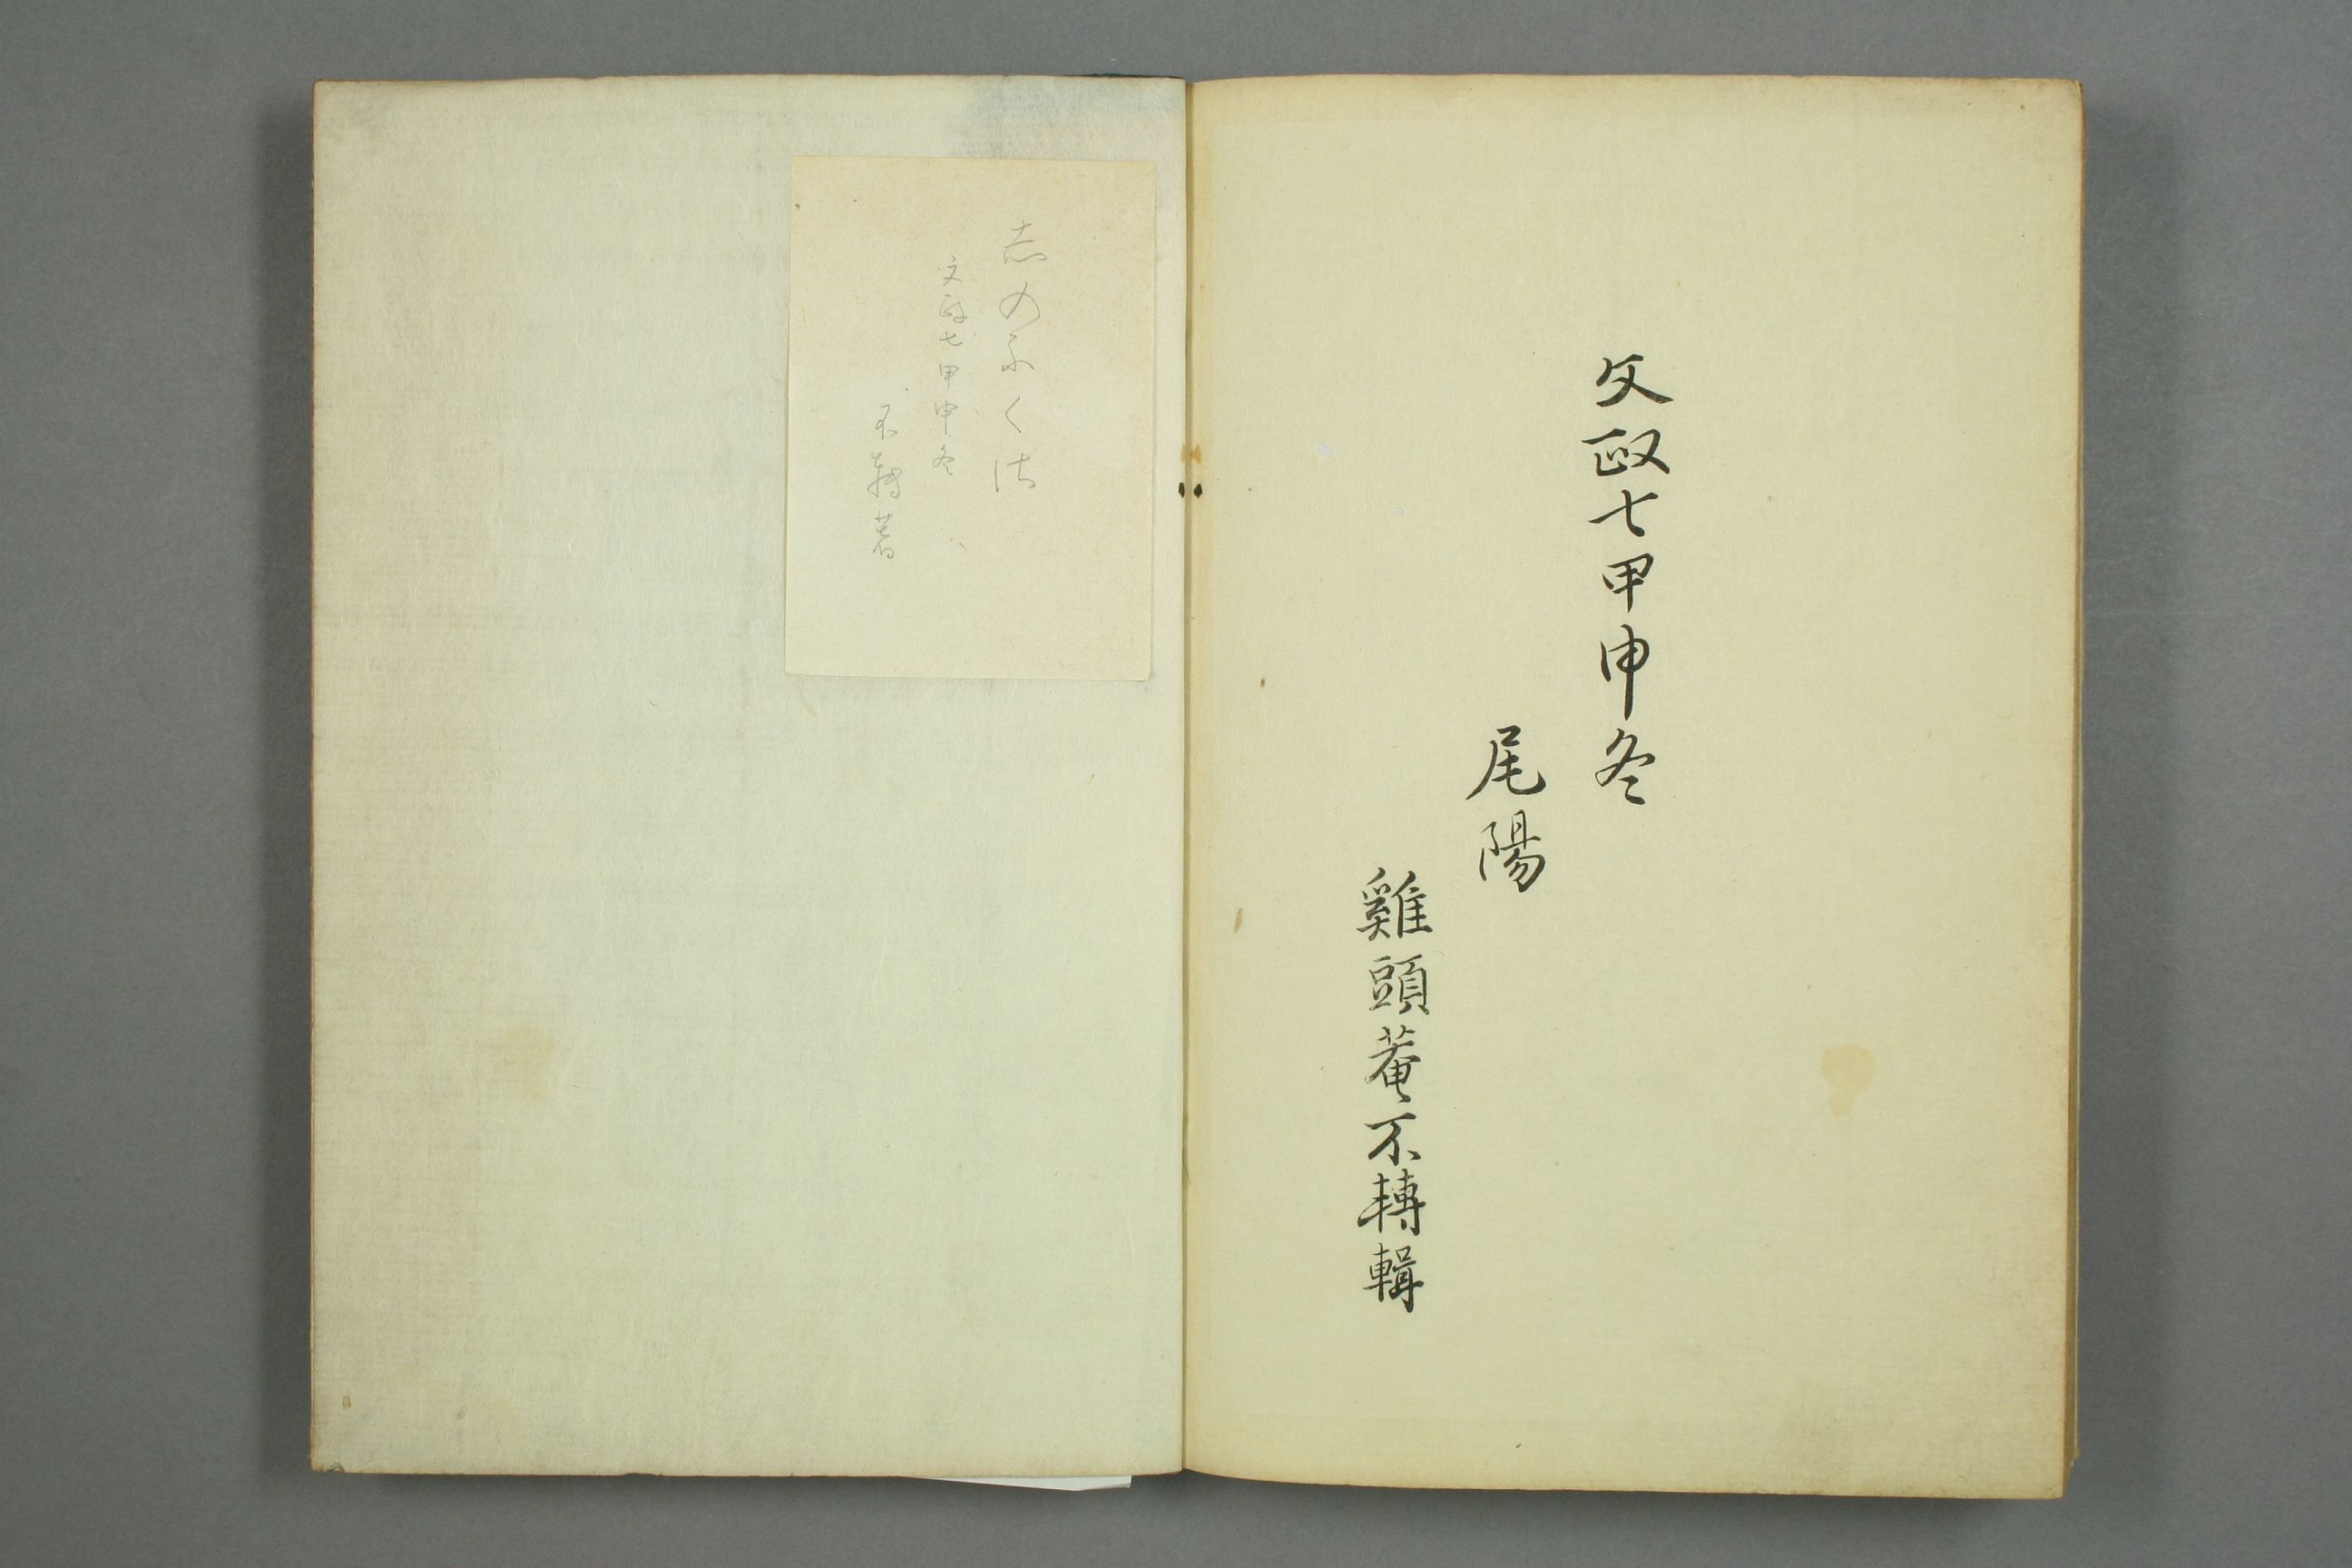 文政七甲申冬
尾陽
雞頭菴不轉輯
志のふくは
文政七甲申冬
不轉著